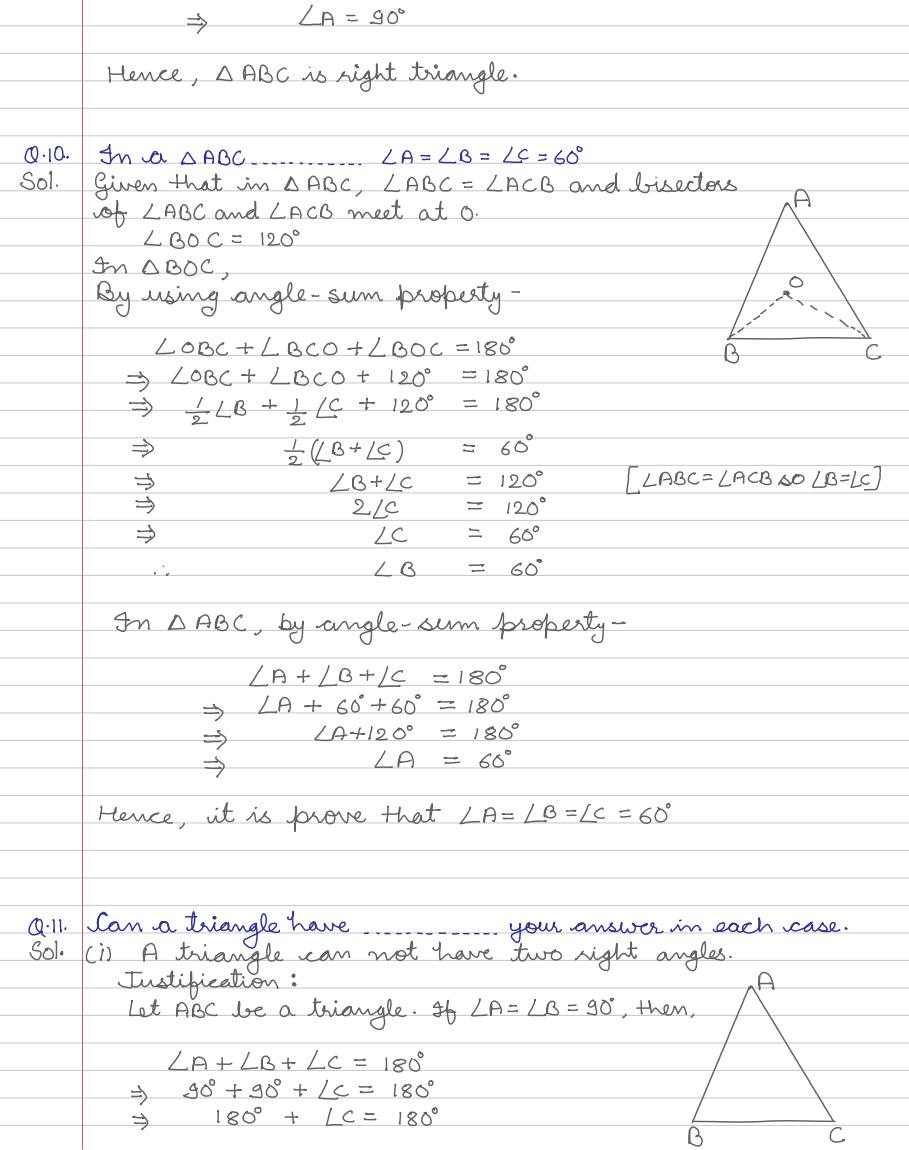 ⇒ ∠A = 90°
Hence, △ABC is right triangle.
Q.10. In a △ABC............ ∠A = ∠B = ∠C = 60°
Sol. Given that in △ABC, ∠ABC = ∠ACB and bisectors
of ∠ABC and ∠ACB meet at O.
∠BOC = 120°
In △BOC,
By using angle-sum property-
∠OBC + ∠BCO + ∠BOC = 180°
⇒ ∠OBC + ∠BCO + 120° = 180°
⇒ 1/2 ∠B + 1/2 ∠C + 120° = 180°
⇒ 1/2 (∠B + ∠C) = 60°
⇒ ∠B + ∠C = 120° [∠ABC = ∠ACB so ∠B = ∠C]
⇒ 2∠C = 120°
⇒ ∠C = 60°
∴ ∠B = 60°
A
O
B C
In △ABC, by angle-sum property-
∠A + ∠B + ∠C = 180°
⇒ ∠A + 60° + 60° = 180°
⇒ ∠A + 120° = 180°
⇒ ∠A = 60°
Hence, it is prove that ∠A = ∠B = ∠C = 60°
Q.11. Can a triangle have .............. your answer in each case.
Sol. (i) A triangle can not have two right angles.
Justification :
Let ABC be a triangle. If ∠A = ∠B = 90°, then,
∠A + ∠B + ∠C = 180°
⇒ 90° + 90° + ∠C = 180°
⇒ 180° + ∠C = 180°
A
B C